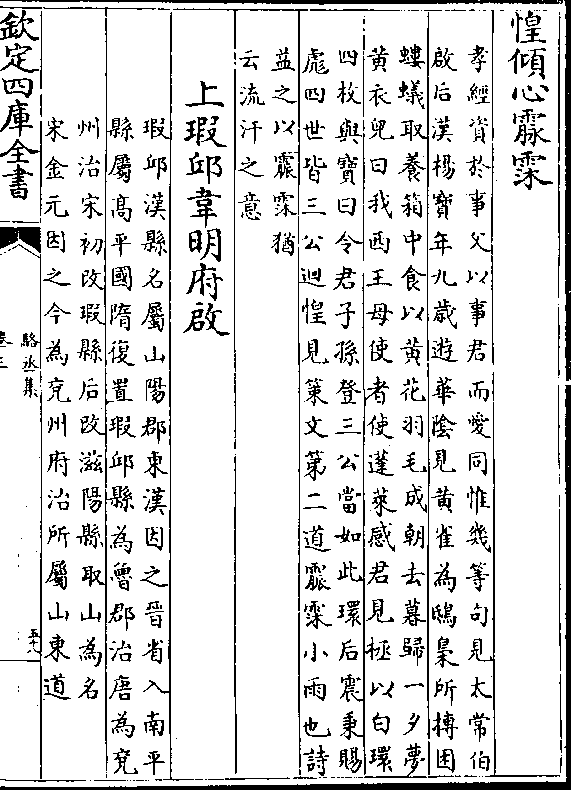 惶傾心霢霂
孝經資於事父以事君而愛同惟幾等句見太常伯
啟后漢楊寶年九歳遊華陰見黄雀為鴟梟所摶困
螻蟻取養箱中食以黄花羽毛成朝去暮歸一夕夢
黄衣兒曰我西王母使者使蓬萊感君見極以白環
四枚與寶曰令君子孫登三公當如此環后震秉賜
彪四世皆三公迴惶見策文第二道霢霂小雨也詩
益之以霢霂猶
云流汗之意
上瑕邱韋明府啟
瑕邱漢縣名屬山陽郡東漢因之晉省入南平
縣屬髙平國隋復置瑕邱縣為魯郡治唐為兖
州治宋初改瑕縣后改滋陽縣取山為名
宋金元因之今為兖州府治所屬山東道
欽定四庫全書
駱丞集
卷三
五十八